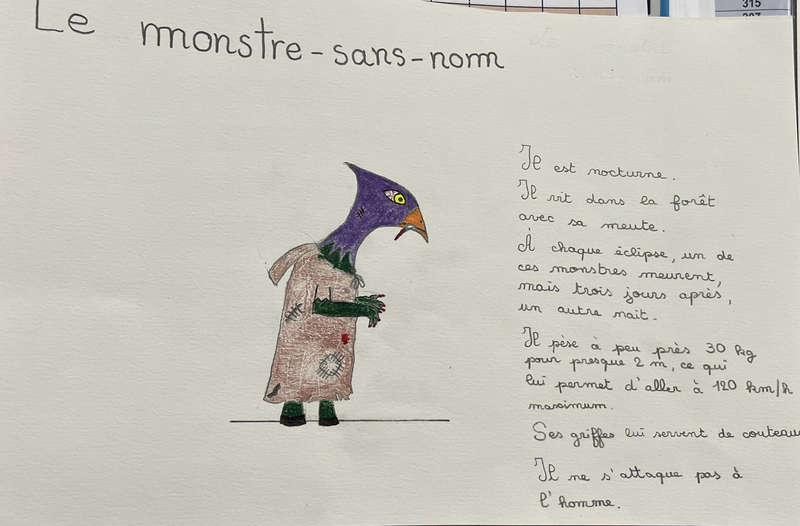 Le monstre-sans-nom
315
Il est nocturne.
Il vit dans la forêt
avec sa meute.
À chaque éclipse, un de
ces monstres meurent,
mais trois jours après,
un autre nait.
Il pèse à peu près 30 kg
pour presque 2 m, ce qui
lui permet d'aller à 120 km/h
maximum.
Ses griffes lui servent de couteau
Il ne s'attaque pas à
l'homme.